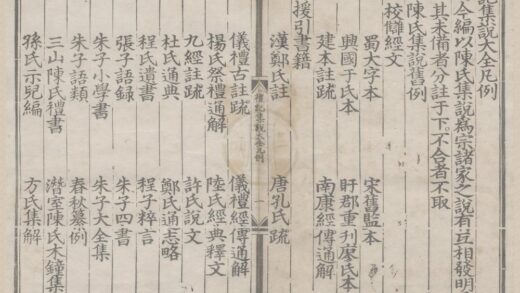 集說大全凡例
今編以陳氏集說為宗諸家之說有互相發明
其未備者分註于下不合者不取
陳氏集說舊例
校讎經文
蜀大字本 宋舊監本
興國于氏本 盱郡重刊廖氏本
建本註疏 南康經傳通解
援引書籍
漢鄭氏註 唐孔氏疏
禮記集說大全凡例 一
儀禮古註疏 儀禮經傳通解
楊氏祭禮通解 陸氏經典釋文
九經註疏 許氏說文
杜氏通典 鄭氏通志略
程氏遺書 程子粹言
張子語錄 朱子四書
朱子小學書 朱子大全集
朱子語類 春秋纂例
三山陳氏禮書 潛室陳氏木鐘集
孫氏示兒編 方氏集解